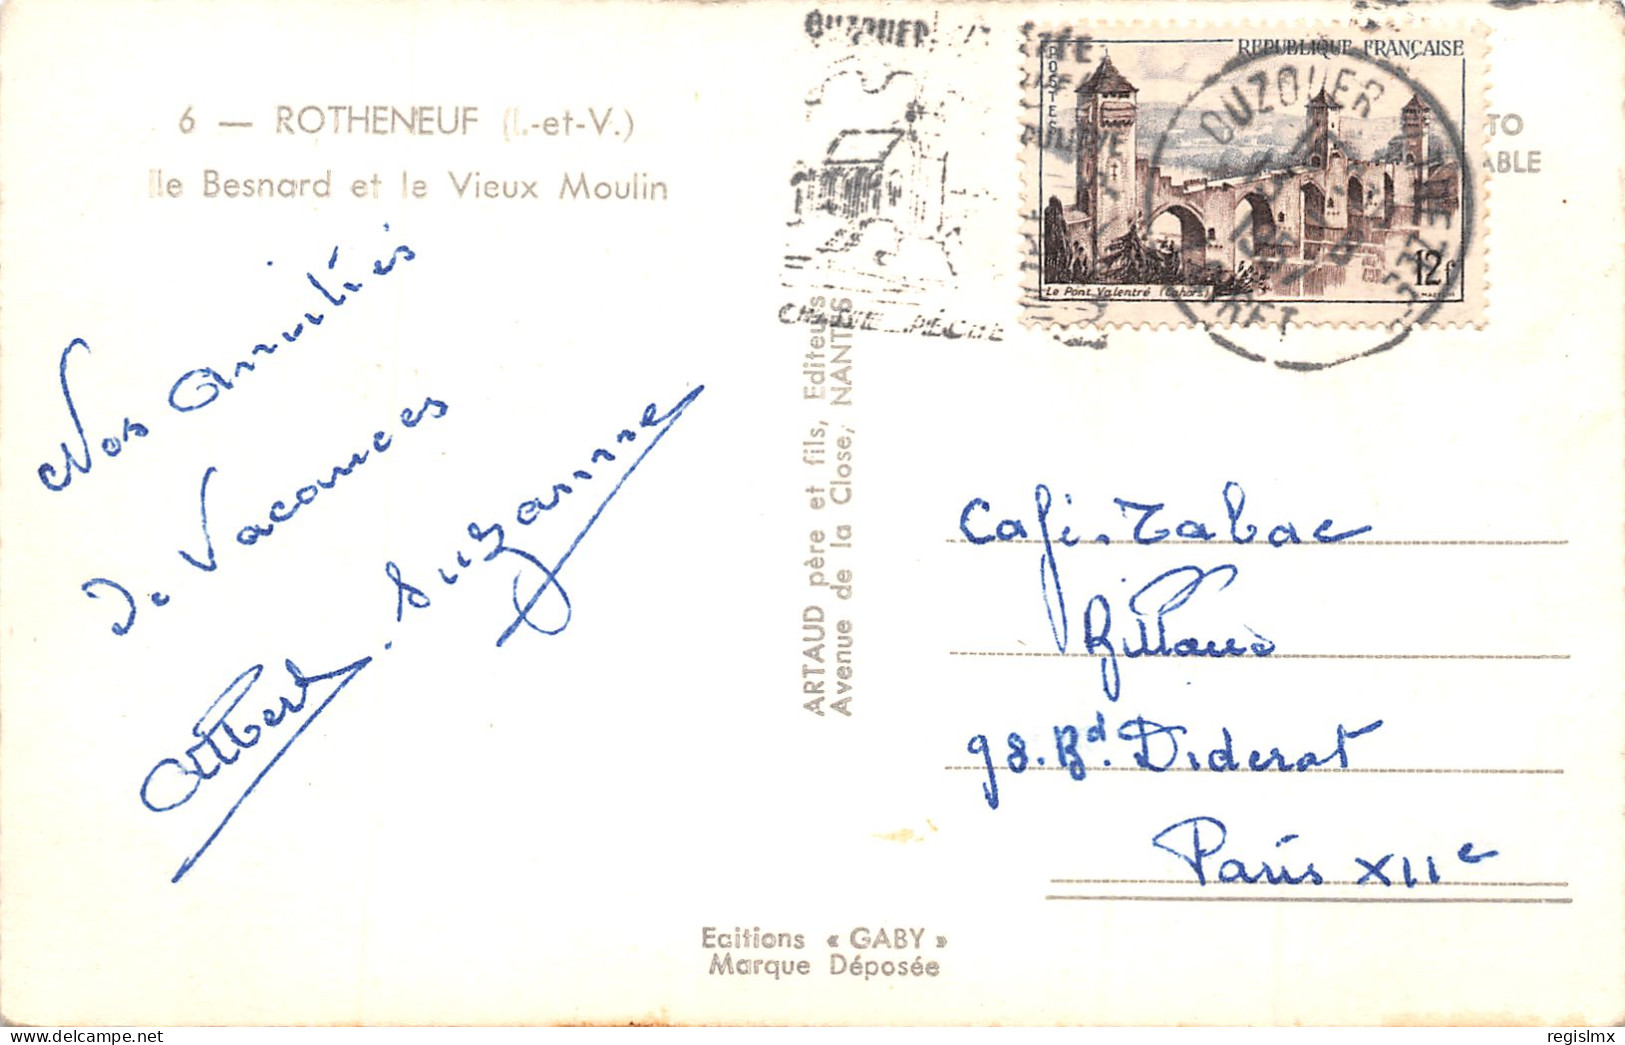 6 — ROTHENEUF (I.-et-V.)
Ile Besnard et le Vieux Moulin
Nos amitiés
de Vacances
Albert. Suzanne
ARTAUD père et fils, Editeurs
Avenue de la Close, NANTES
Editions « GABY »
Marque Déposée
OUZOUER
CHASSE PÊCHE
REPUBLIQUE FRANÇAISE
POSTES
Le Pont Valentré (Cahors)
12f
OUZOUER
LOIRET
TO
ABLE
Café-Tabac
98. Bd. Diderot
Paris XIIe
regislmx